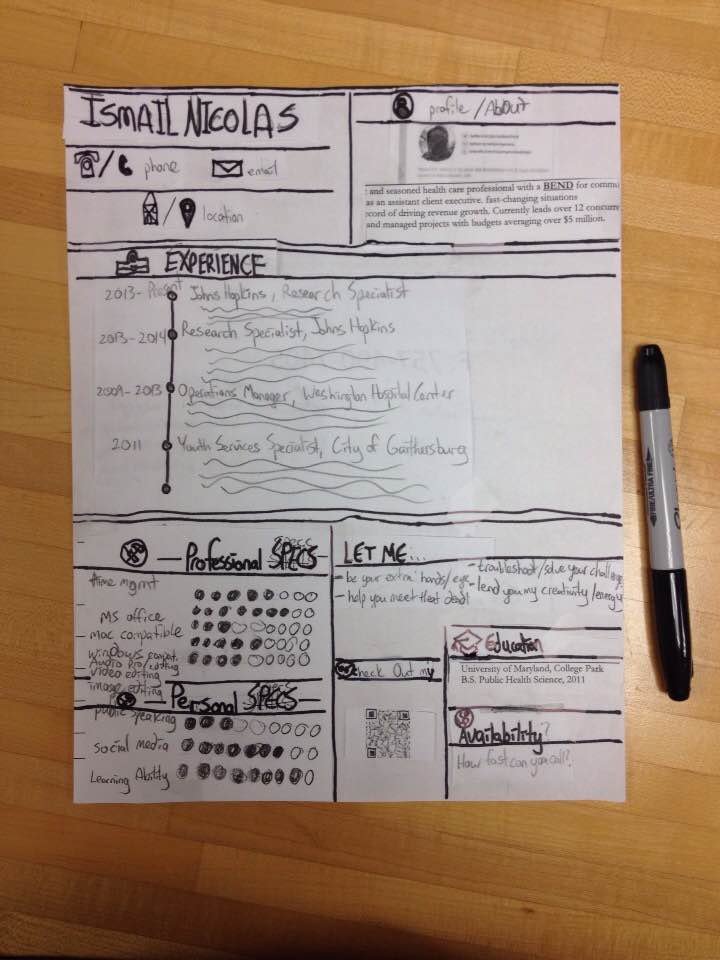 ISMAIL NICOLAS
/ phone email
/ location
profile / About
and seasoned health care professional with a BEND for commu
as an assistant client executive. fast-changing situations
ecord of driving revenue growth. Currently leads over 12 concurre
and managed projects with budgets averaging over $5 million.
EXPERIENCE
2013- Present Johns Hopkins, Research Specialist
2013-2014 Research Specialist, Johns Hopkins
2009-2013 Operations Manager, Washington Hospital Center
2011 Youth Services Specialist, City of Gaithersburg
Professional SPECS
time mgmt
MS office
mac compatible
windows compat.
Audio Pro/editing
video editing
image editing
Personal SPECS
public speaking
social media
Learning Ability
LET ME...
- be your extra hands/eye
- help you meet that deadl
- troubleshoot/solve your challenge
- lend you my creativity/energy
Check Out my
Education
University of Maryland, College Park
B.S. Public Health Science, 2011
Availability?
How fast can you call?
FINE/ULTRA FINE